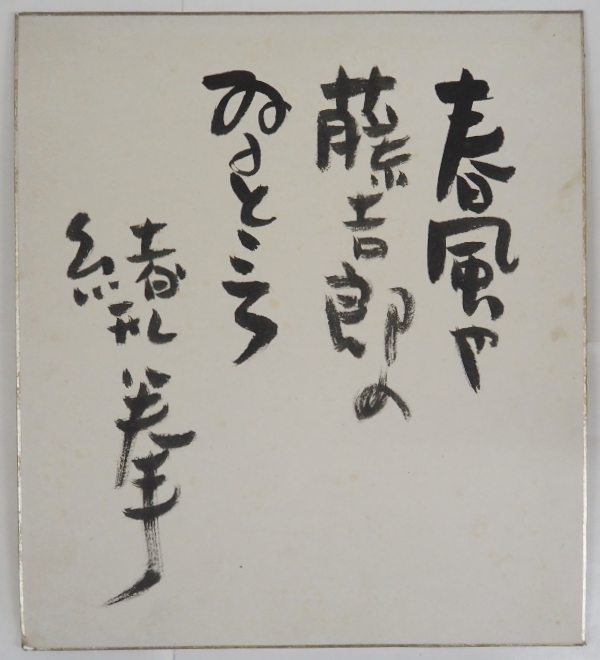 春風や
藤吉郎の
ゐるところ
緒形拳